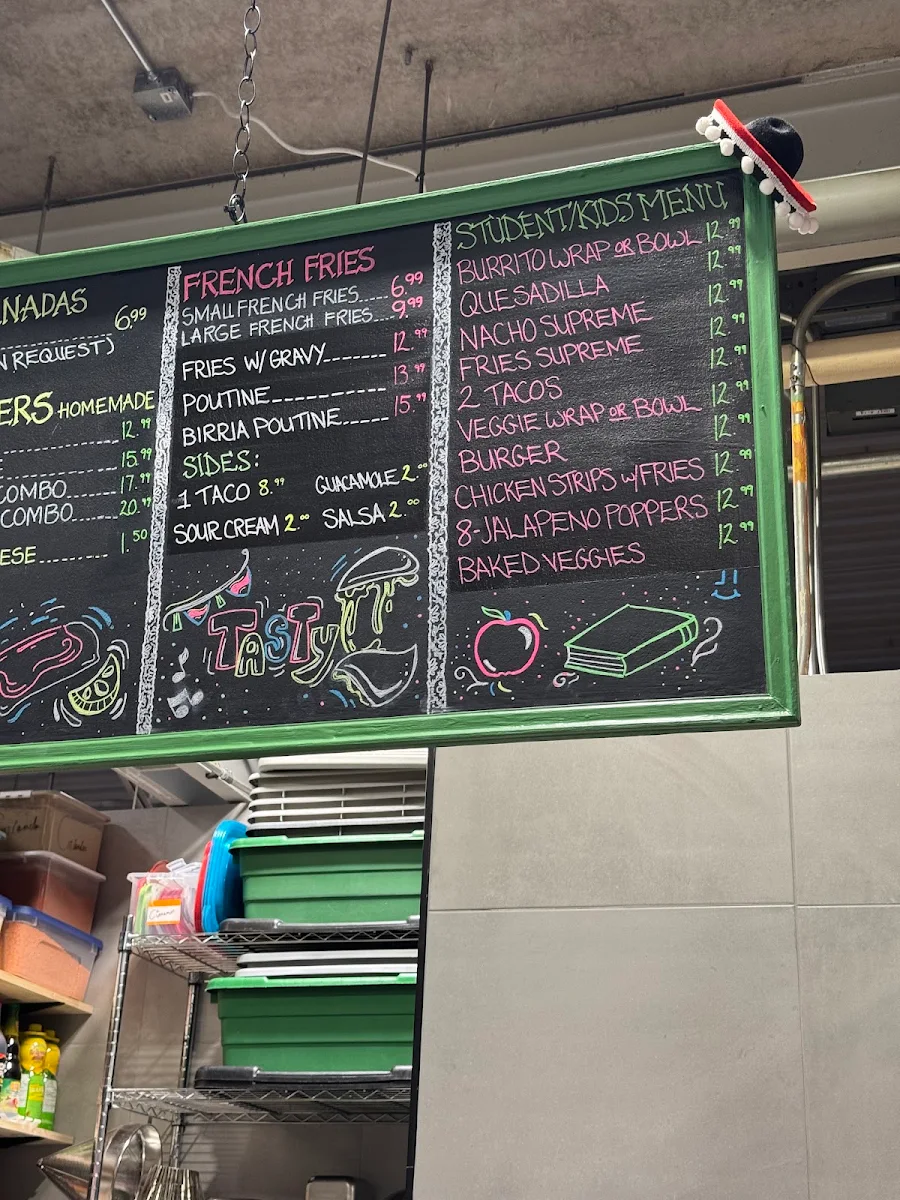 NADAS
6.99
N REQUEST)
ERS HOMEMADE
12.99
15.99
COMBO 17.99
COMBO 20.99
ESE 1.50
FRENCH FRIES
SMALL FRENCH FRIES 6.99
LARGE FRENCH FRIES 9.99
FRIES W/GRAVY 12.99
POUTINE 13.99
BIRRIA POUTINE 15.99
SIDES:
1 TACO 8.99 GUACAMOLE 2.00
SOUR CREAM 2.00 SALSA 2.00
TASTY
STUDENT/KIDS MENU
BURRITO WRAP OR BOWL 12.99
QUESADILLA 12.99
NACHO SUPREME 12.99
FRIES SUPREME 12.99
2 TACOS 12.99
VEGGIE WRAP OR BOWL 12.99
BURGER 12.99
CHICKEN STRIPS W/FRIES 12.99
8-JALAPENO POPPERS 12.99
BAKED VEGGIES 12.99